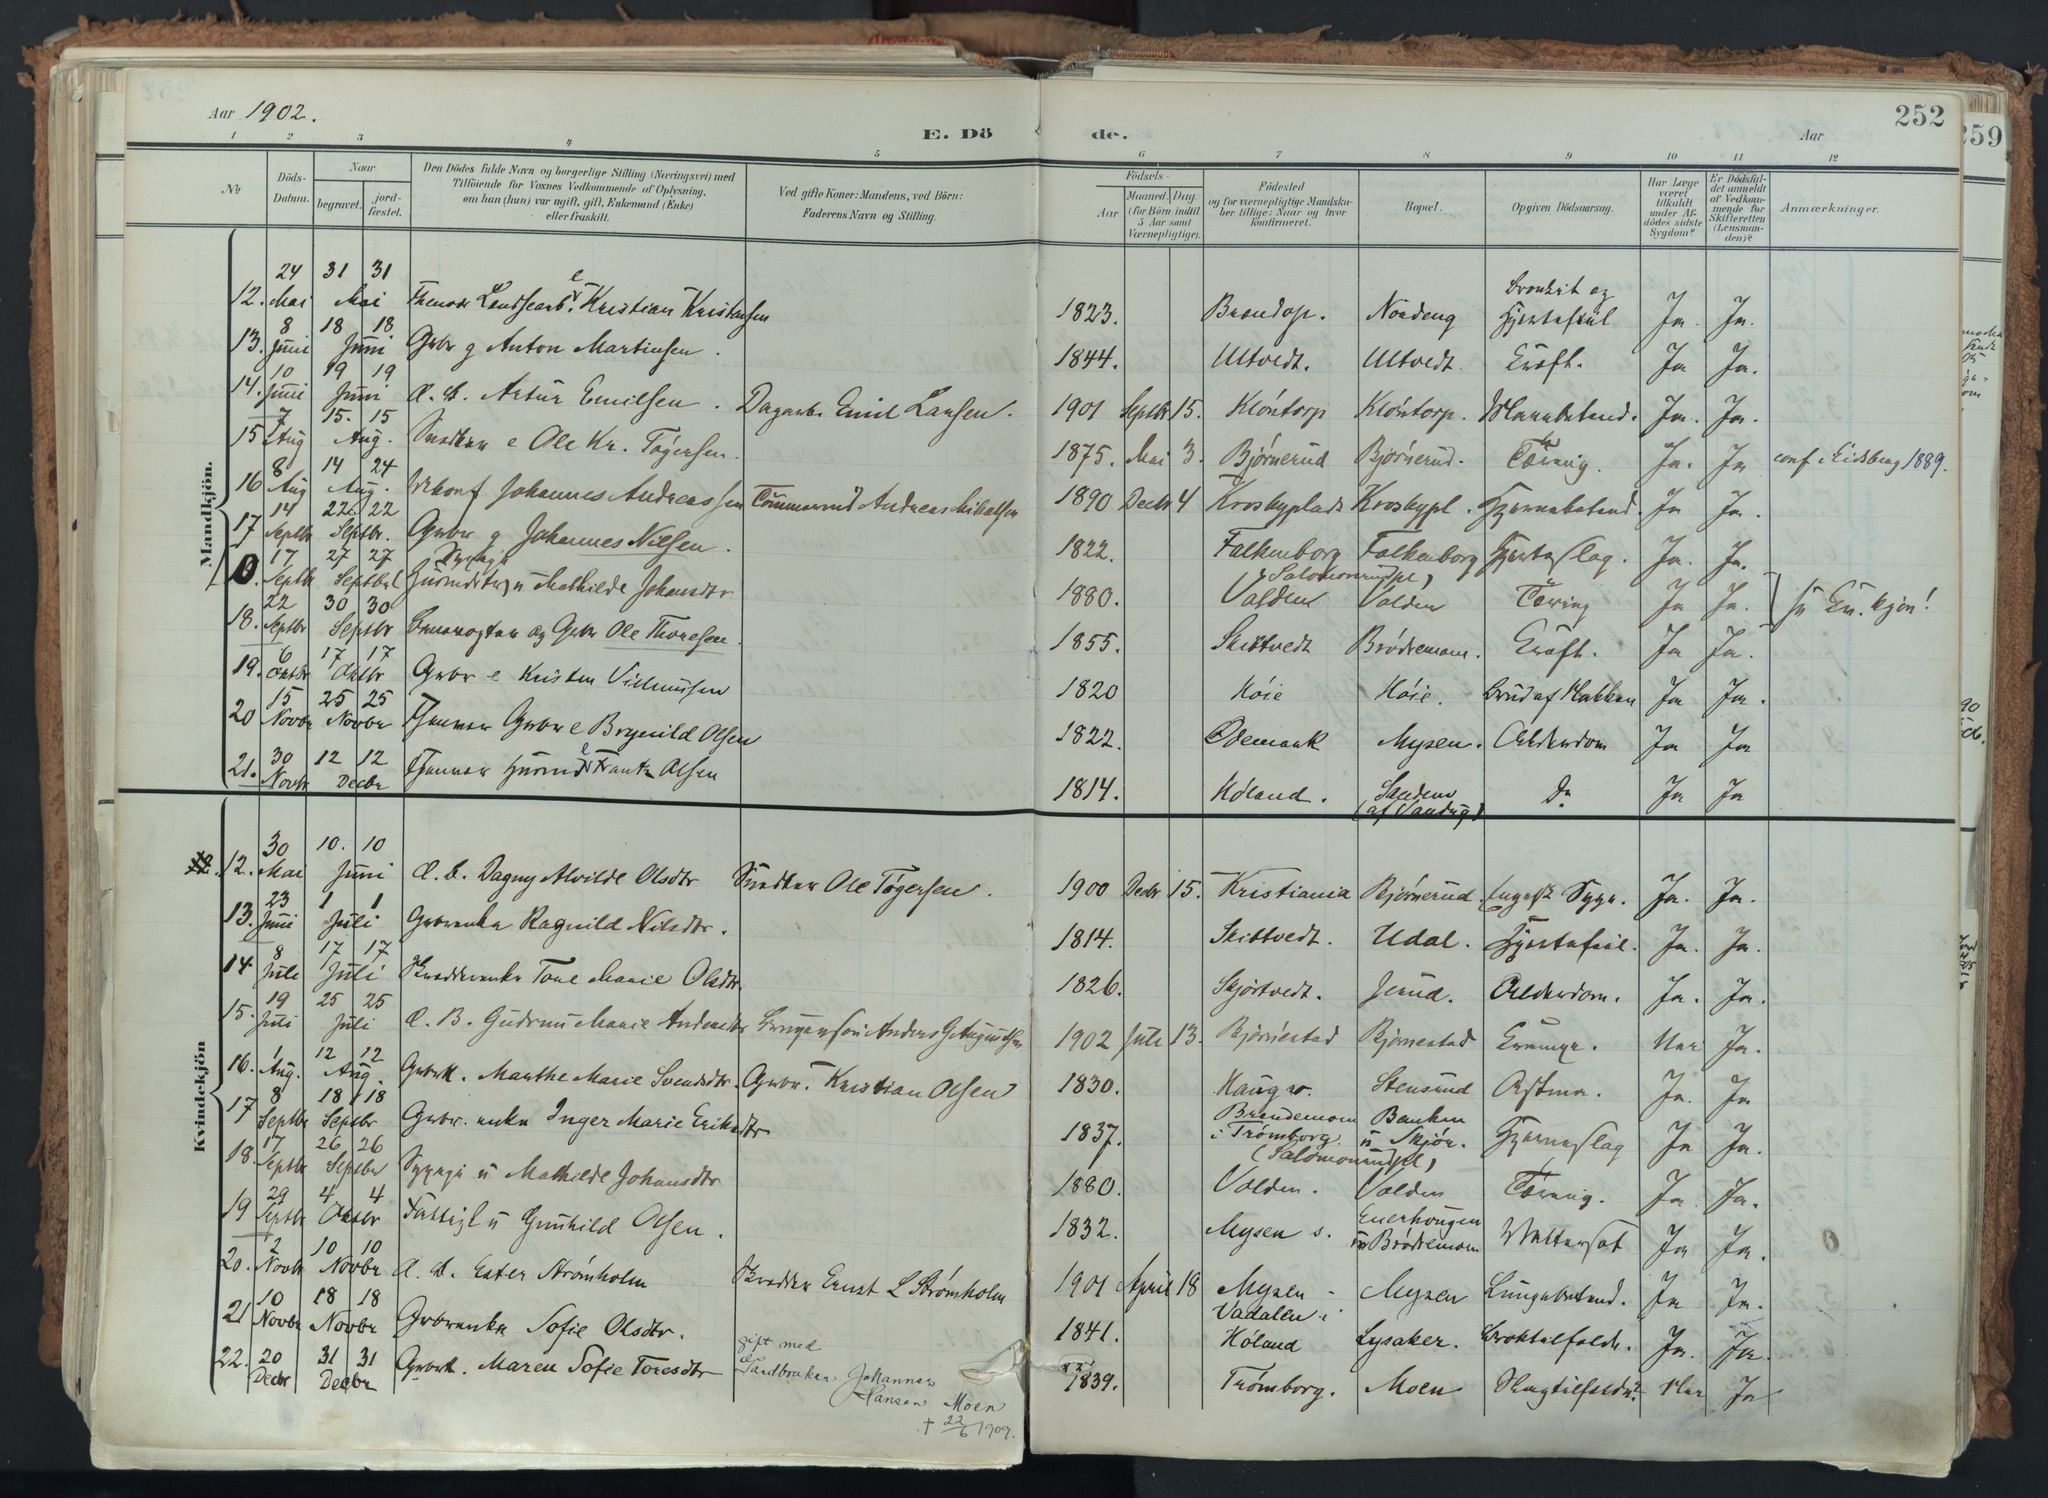 252
259
Aar 1902.
E. Dö
de.
Aar
1 2 3 4 5 6 7 8 9 10 11 12
No
Döds-Datum.
Naar
begravet.
jord-fæstet.
Den Dödes fulde Navn og borgerlige Stilling (Næringsvei) med
Tilföiende for Voxnes Vedkommende af Oplysning,
om han (hun) var ugift, gift, Enkemand (Enke)
eller fraskilt.
Ved gifte Koner: Mandens, ved Börn:
Faderens Navn og Stilling.
Födsels-
Aar
Maaned. Dag.
(for Börn indtil
5 Aar samt
Værnepligtige).
Födested
og for værnepligtige Mandska-
ber tillige: Naar og hvor
konfirmeret.
Bopæl.
Opgiven Dödsaarsag.
Har Læge
været
tilkaldt
under Af-
dödes sidste
Sygdom?
Er Dödsfal-
det anmeldt
af Vedkom-
mende for
Skifteretten
(Lensman-
den)?
Anmærkninger.
Mandkjön.
12. 24 Mai 31 31 Mai Kristian Kristensen 1823. Nordeng Bronkit og Hjertefeil Ja. Ja.
13. 8 Juni 18 18 Juni Gbr g Anton Martinsen. 1844. Ultvedt. Ultvedt Kræft. Ja Ja.
14. 10 Juni 19 19 Juni Æ. B. Artur Emilsen. Dagarb. Emil Larsen. 1901 Septbr 15. Klöntorp Klöntorp. Ja. Ja.
15 7 Aug 15. 15 Aug. Snedker e Ole Kr. Tøgersen. 1875. Mai 3. Bjørnerud Bjørnerud. Tæring. Ja. Ja conf i Eidsberg 1889.
16 8 Aug 14 24 Aug. Johannes Andreassen Andreas 1890 Decbr 4 Krosbyplads Krosbypl. Hjernebetænd. Ja Ja.
17 14 Septbr 22 22 Septbr. Gbr g Johannes Nilsen. 1822. Falkenborg Falkenborg Hjerteslag. Ja. Ja.
17 Septbr 27 27 Septbr Sypige (Husmdtr) u Mathilde Johansdtr 1880. (Salomonrudpl) Volden Volden Tæring Ja Ja. se Kv. kjøn!
18. 22 Septbr 30 30 Septbr og Gbr Ole Thoresen. 1855. Skibtvedt Brødremoen. Kræft. Ja Ja.
19. 6 Oktbr 17 17 Oktbr Gbr e Kristen Villumsen 1820 Høie Høie. Brud af Ja Ja.
20 15 Novbr 25 25 Novbr Gbr e Brynild Olsen 1822. Ødemark Mysen. Alderdom Ja Ja
21. 30 Novbr 12 12 Decbr Husmd Frants Olsen 1814. Høland. Do Ja Ja
Kvindekjön
12. 30 Mai 10. 10 Juni Æ. B. Dagny Alvilde Olsdtr Snedker Ole Tøgersen. 1900 Decbr 15. Kristiania Bjørnerud Engelsk Syge. Ja. Ja.
13. 23 Juni 1 1 Juli Gbrenke Ragnild Nilsdtr. 1814. Skibtvedt. Udal. Hjertefeil. Ja. Ja.
14. 8 Juli 17 17 Juli Tone Marie Olsdtr. 1826. Skjørtvedt. Alderdom. Ja. Ja.
15. 19 Juli 25 25 Juli Æ. B. Gudrun Marie Andersdtr Brugerson Anders G. Augustsen 1902 Juli 13. Bjørnestad Bjørnestad Krampe. Nei Ja.
16. 1 Aug. 12 12 Aug. Gbrk. Marthe Marie Svendsdtr. Gbr. Kristian Olsen 1830. Haug Stensrud Astma. Ja. Ja
17 8 Septbr 18 18 Septbr Gbr. enke Inger Marie Eriksdtr 1837. i Trømborg. Bakken u Skjør. Hjerneslag Ja Ja.
18. 17 Septbr 26 26 Septbr Sypige u Mathilde Johansdtr 1880. (Salomonrudpl) Volden. Volden Tæring. Ja Ja.
19 29 Septbr 4 4 Oktbr Fattigl u Gunhild Olsen. 1832. Mysen s. Enerhougen u Brødremoen Vattersot Ja Ja.
20. 2 Novbr 10 10 Novbr Æ. B. Ester Strømholm Skrædder Ernst L Strømholm 1901 April 18 Mysen Mysen Lungebetænd. Ja Ja.
21 10 Novbr 18 18 Novbr Gbrenke Sofie Olsdtr. 1841. Vadalen i Høland Lysaker. Ja. Ja.
22. 20 Decbr 31 31 Decbr Gbrk. Maren Sofie Toresdtr gift med Gaardbruker Johannes Hansen Moen † 22/6 1909. 1839. Trømborg. Moen Slagtilfælde? Nei Ja